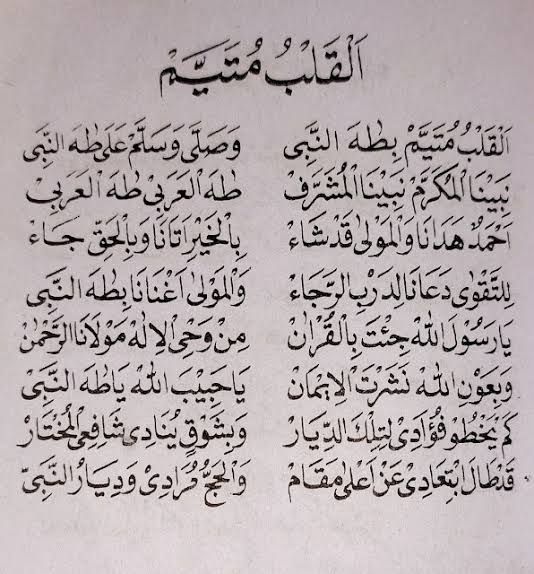 اَلْقَلْبُ مُتَيَّمْ
اَلْقَلْبُ مُتَيَّمْ بِطٰهَ النَّبِى وَصَلَّى وَسَلَّمْ عَلَى طٰهَ النَّبِى
نَبِيْنَا الْمُكَرَّمْ نَبِيْنَا الْمُشَرَّفْ طٰهَ الْعَرَبِيْ طٰهَ الْعَرَبِيْ
اَحْمَدْ هَدَانَا وَالْمَوْلَى قَدْ شَاءْ بِالْخَيْرِ اَتَانَا وَبِالْحَقِّ جَاءْ
لِلتَّقْوٰى دَعَانَا لِدَرْبِ الرَّجَاءْ وَالْمَوْلَى اَغْنَانَا بِطٰهَ النَّبِى
يَا رَسُوْلَ اللهْ جِئْتَ بِالْقُرْاٰنْ مِنْ وَحْيِ الْاِلٰهْ مَوْلَانَا الرَّحْمٰنْ
وَبِعَوْنِ اللهْ نَشَرْتَ الْاِيْمَانْ يَا حَبِيْبَ اللهْ يَا طٰهَ النَّبِىْ
كَمْ يَخْطُوْ فُؤَادِىْ لِتِلْكَ الدِّيَارْ وَبِشَوْقٍ يُنَادِىْ شَافِعِى الْمُخْتَارْ
قَدْ طَالَ ابْتِعَادِىْ عَنْ اَعْلٰى مَقَامْ وَالْحَجُّ مُرَادِىْ وَدِيَارُ النَّبِىّ